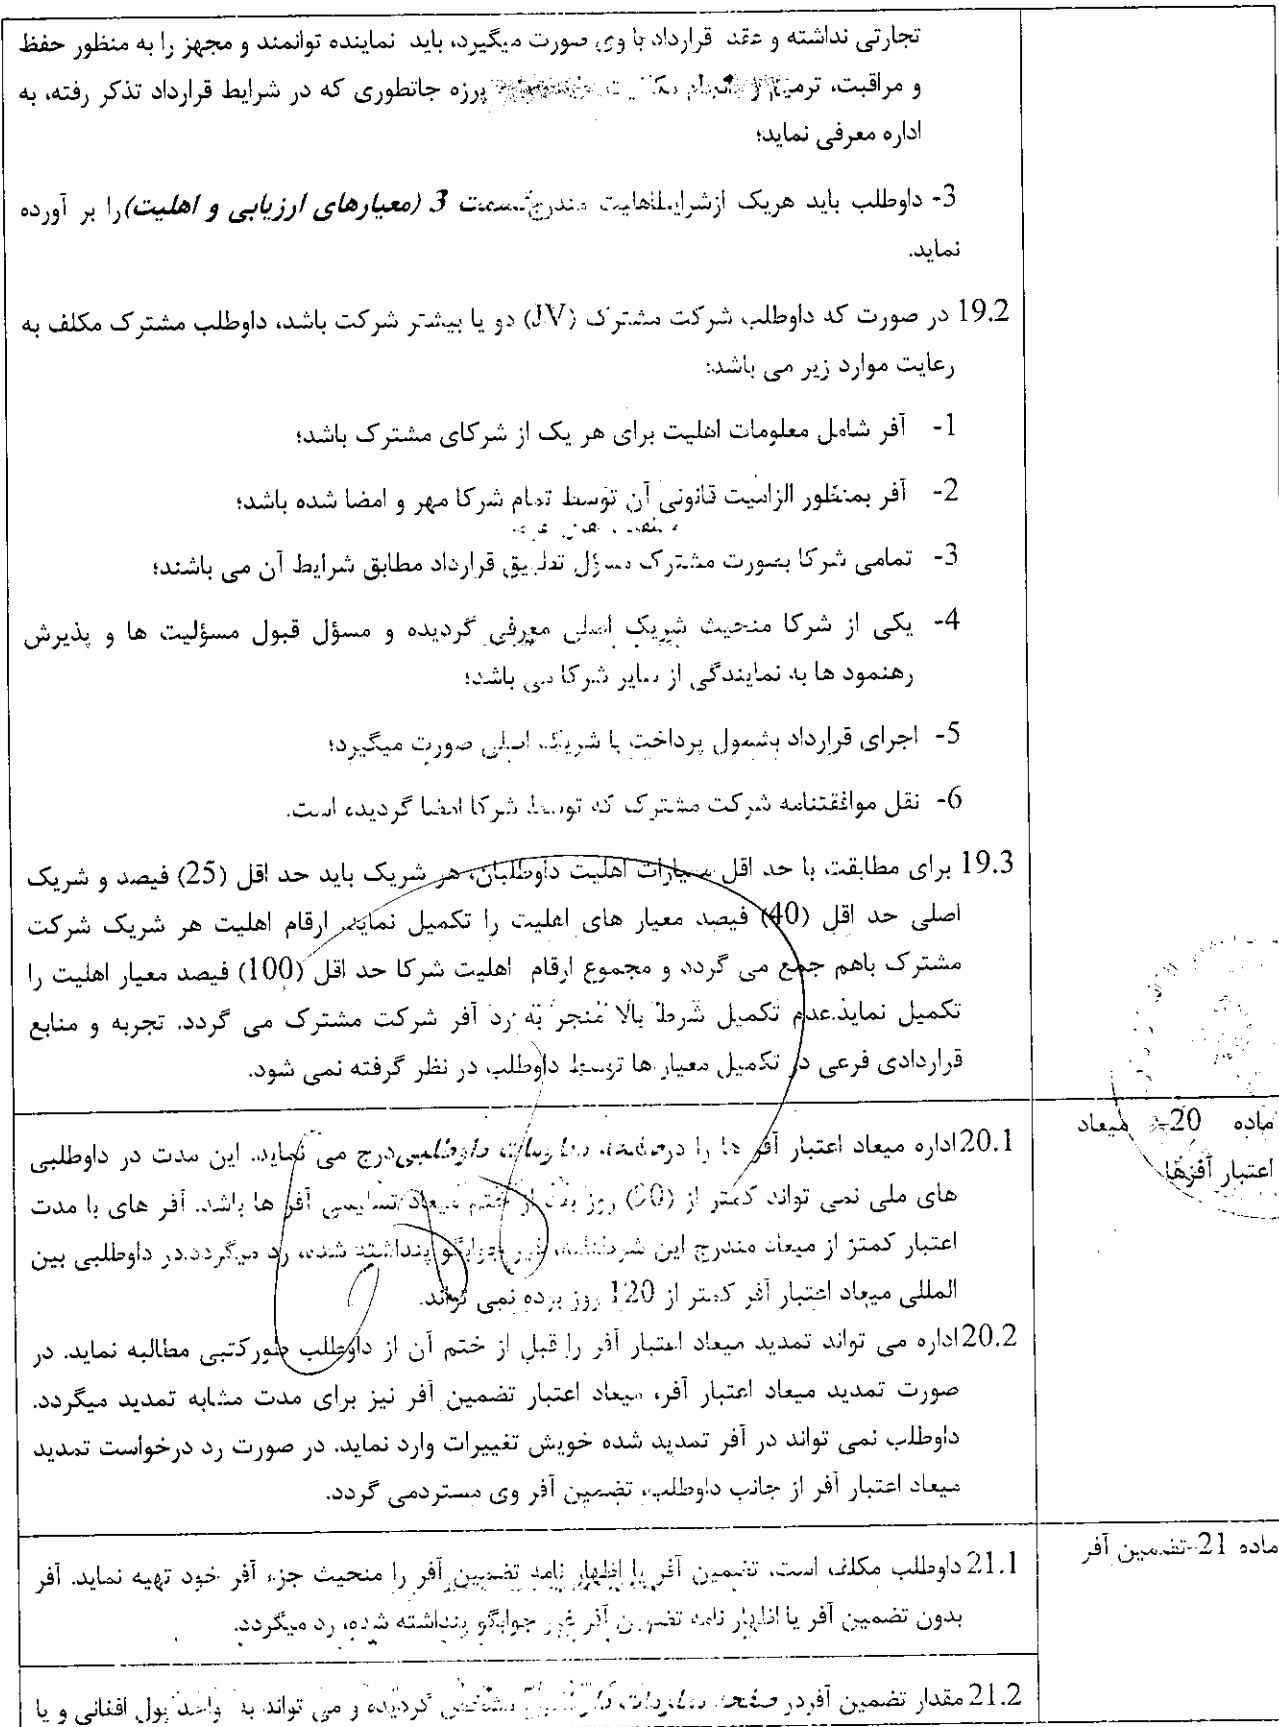 تجارتی نداشته و عقد قرارداد با وی صورت میگیرد، باید نماینده توانمند و مجهز را به منظور حفظ
و مراقبت، ترمیم و انجام پرزه جاتطوری که در شرایط قرارداد تذکر رفته، به
اداره معرفی نماید؛
3- داوطلب باید هریک ازشرایطاهلیت مندرجقسمت 3 (معیارهای ارزیابی و اهلیت)را بر آورده
نماید.
19.2 در صورت که داوطلب شرکت مشترک (JV) دو یا بیشتر شرکت باشد، داوطلب مشترک مکلف به
رعایت موارد زیر می باشد:
1- آفر شامل معلومات اهلیت برای هر یک از شرکای مشترک باشد؛
2- آفر بمنظور الزامیت قانونی آن توسط تمام شرکا مهر و امضا شده باشد؛
3- تمامی شرکا بصورت مشترک مسؤل تطبیق قرارداد مطابق شرایط آن می باشند؛
4- یکی از شرکا منحیث شریک اصلی معرفی گردیده و مسؤل قبول مسؤلیت ها و پذیرش
رهنمود ها به نمایندگی از سایر شرکا می باشد؛
5- اجرای قرارداد بشمول پرداخت با شریک اصلی صورت میگیرد؛
6- نقل موافقتنامه شرکت مشترک که توسط شرکا امضا گردیده است.
19.3 برای مطابقت با حد اقل معیارات اهلیت داوطلبان، هر شریک باید حد اقل (25) فیصد و شریک
اصلی حد اقل (40) فیصد معیار های اهلیت را تکمیل نماید. ارقام اهلیت هر شریک شرکت
مشترک باهم جمع می گردد و مجموع ارقام اهلیت شرکا حد اقل (100) فیصد معیار اهلیت را
تکمیل نماید.عدم تکمیل شرط بالا منجر به رد آفر شرکت مشترک می گردد. تجربه و منابع
قراردادی فرعی در تکمیل معیار ها توسط داوطلب در نظر گرفته نمی شود.
ماده 20- میعاد
اعتبار آفرها
20.1اداره میعاد اعتبار آفر ها را درصفحه معلومات داوطلبیدرج می نماید. این مدت در داوطلبی
های ملی نمی تواند کمتر از (90) روز بعد از ختم میعاد تسلیمی آفر ها باشد. آفر های با مدت
اعتبار کمتر از میعاد مندرج این شرطنامه، غیر جوابگو پنداشته شده، رد میگردد.در داوطلبی بین
المللی میعاد اعتبار آفر کمتر از 120 روز بوده نمی تواند.
20.2اداره می تواند تمدید میعاد اعتبار آفر را قبل از ختم آن از داوطلب طورکتبی مطالبه نماید. در
صورت تمدید میعاد اعتبار آفر، میعاد اعتبار تضمین آفر نیز برای مدت مشابه تمدید میگردد.
داوطلب نمی تواند در آفر تمدید شده خویش تغییرات وارد نماید. در صورت رد درخواست تمدید
میعاد اعتبار آفر از جانب داوطلب، تضمین آفر وی مستردمی گردد.
ماده 21-تضمین آفر
21.1 داوطلب مکلف است، تضمین آفر یا اظهار نامه تضمین آفر را منحیث جزء آفر خود تهیه نماید. آفر
بدون تضمین آفر یا اظهار نامه تضمین آفر غیر جوابگو پنداشته شده، رد میگردد.
21.2 مقدار تضمین آفردر صفحه معلومات داوطلبی مشخص گردیده و می تواند به واحد پول افغانی و یا